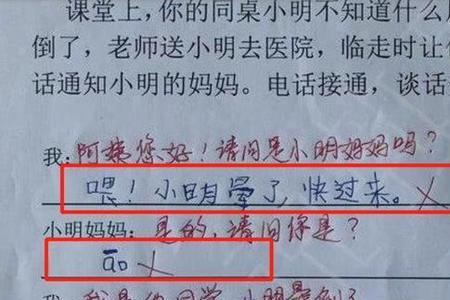 课堂上，你的同桌小明不知道什么
倒了，老师送小明去医院，临走时让
话通知小明的妈妈。电话接通，谈话
我：阿姨您好！请问是小明妈妈吗？
喂！小明晕了，快过来。
小明妈妈：是的，请问你是？
āo
我 我是他同学，小明晕倒了